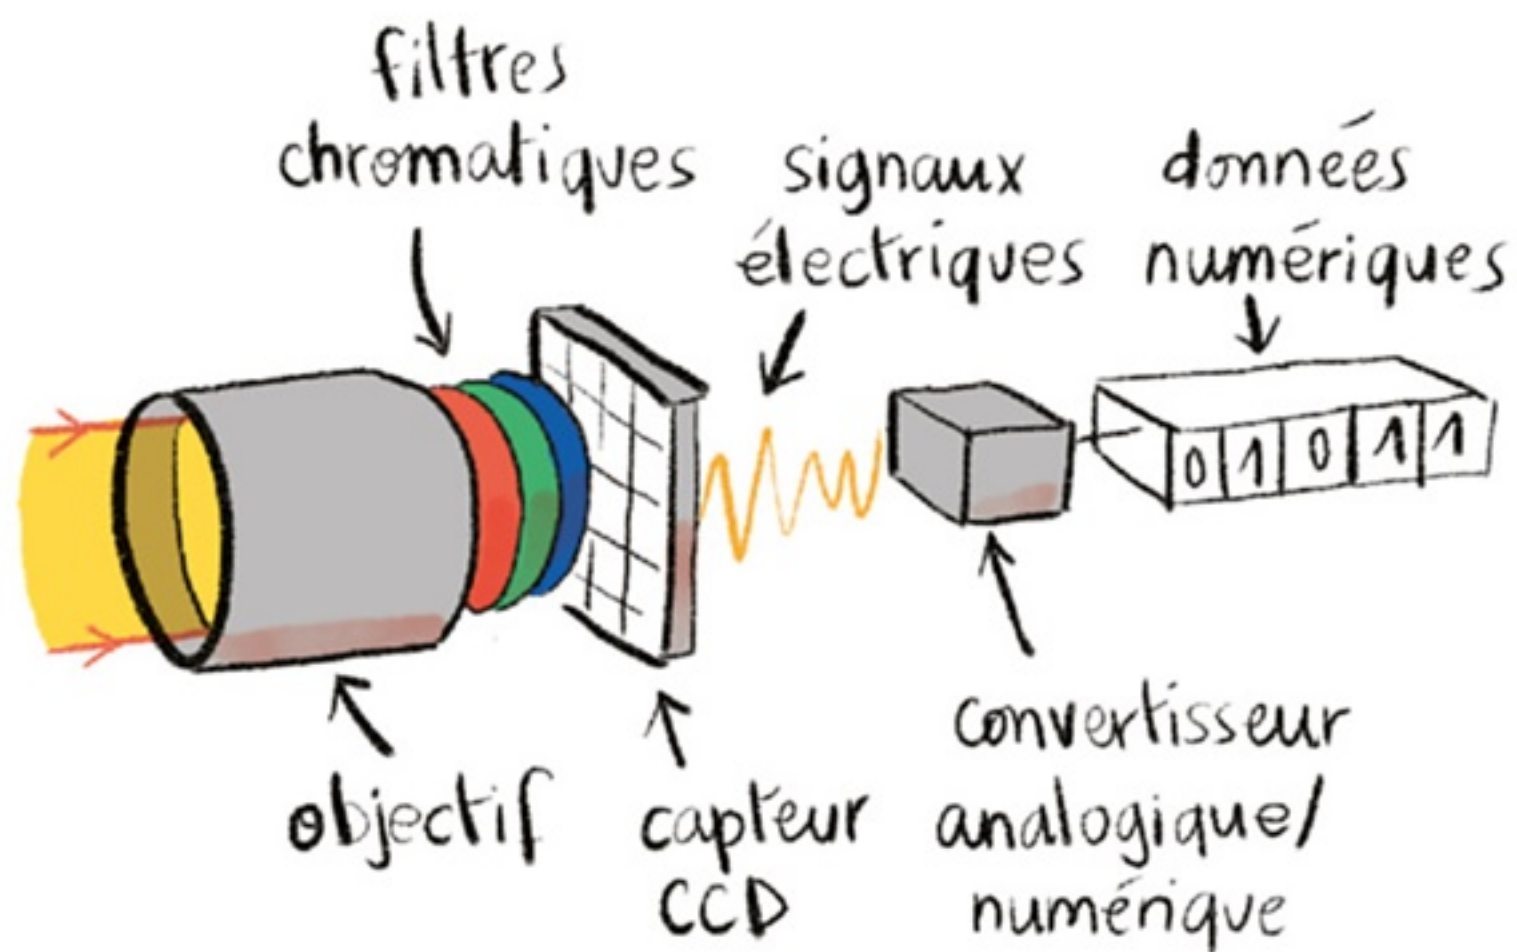 filtres
chromatiques
signaux
électriques
données
numériques
0 1 0 1 1
objectif
capteur
CCD
convertisseur
analogique/
numérique